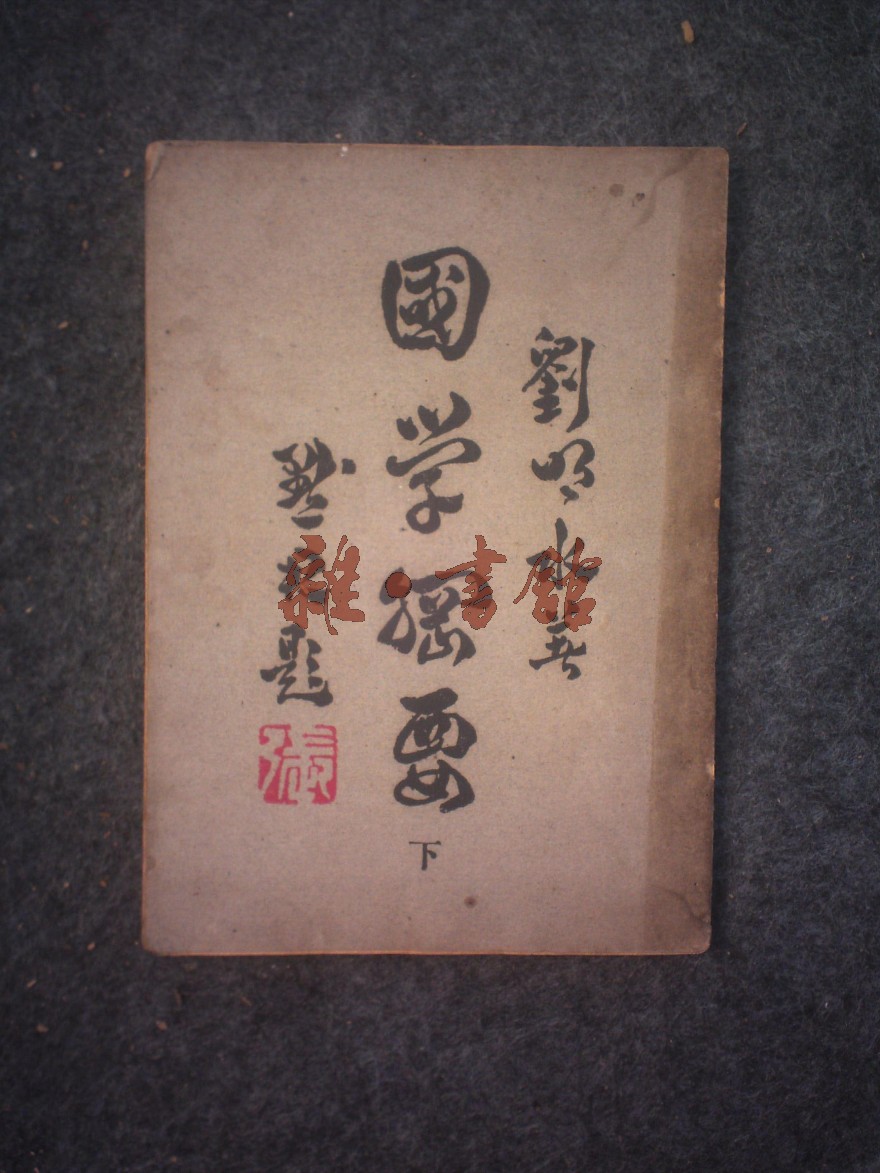 劉明水著
國学綱要
下
題
雜·書館